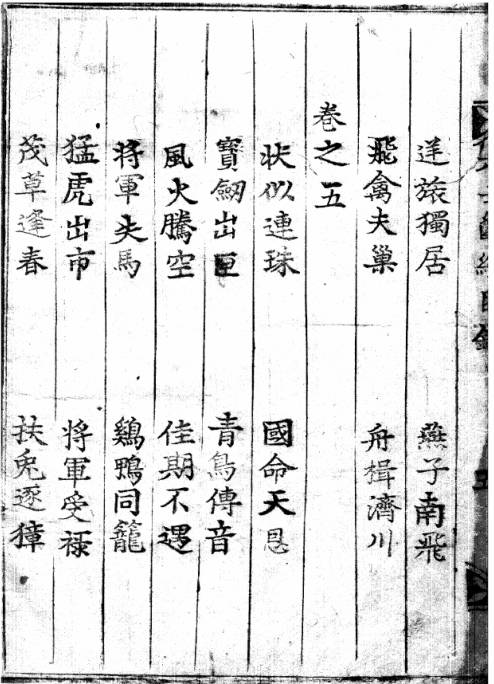 逆旅獨居　燕子南飛
飛禽夫巢　舟楫濟川
卷之五
狀似連珠　國命天恩
寶劒出匣　青鳥傳音
風火騰空　佳期不遇
將軍失馬　鷄鴨同籠
猛虎出市　將軍受祿
茂草逢春　扶兎逐獐